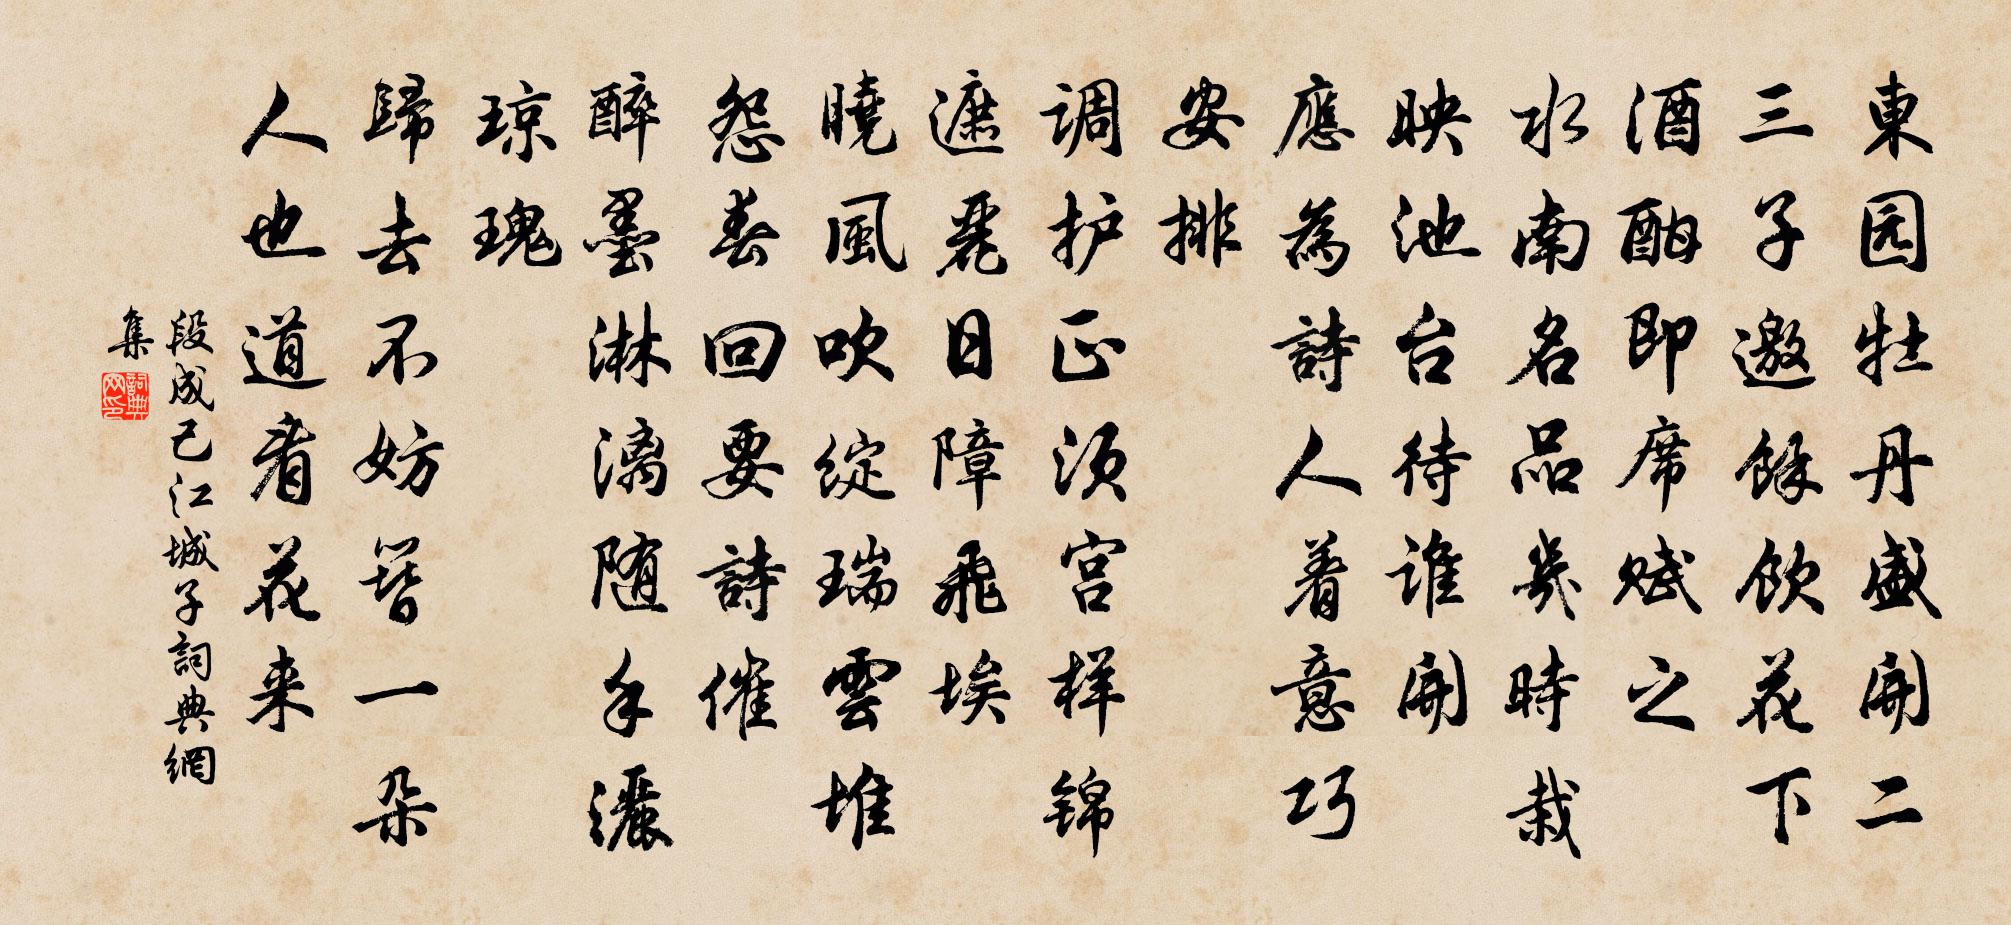 東园牡丹盛開二
三子邀餘飲花下
酒酣即席賦之
水南名品幾時栽
映池台待谁開
應為詩人着意巧
安排
调护正须宫样锦
遮麗日障飛埃
曉風吹綻瑞雲堆
怨春回要詩催
醉墨淋漓随手灑
琼瑰
歸去不妨簪一朵
人也道看花来
段成己江城子詞典網
集
詞典網印